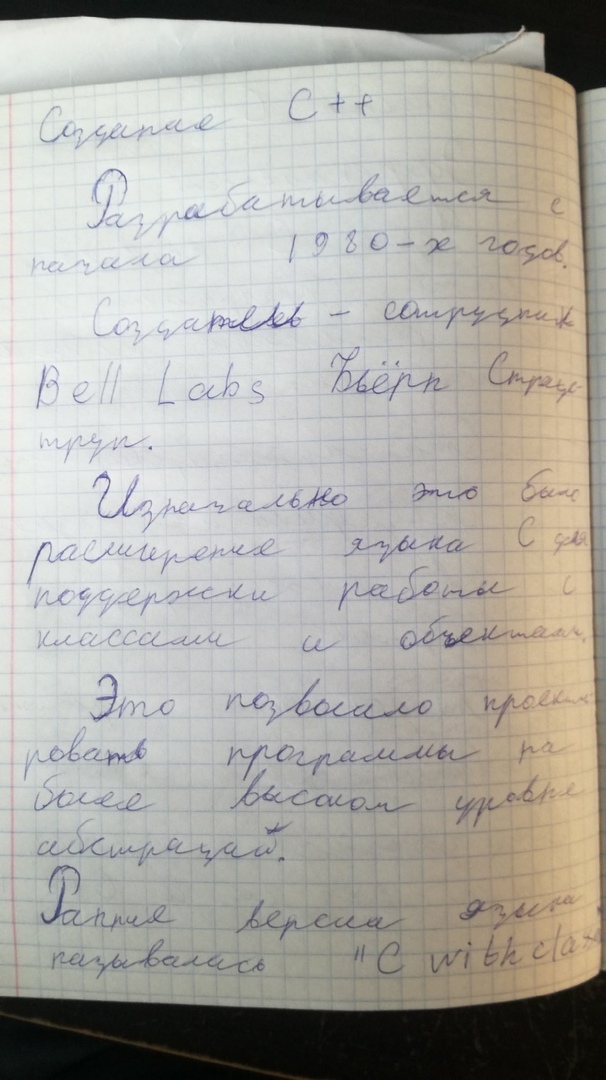 Создание C++
Разрабатывается с
начала 1980-х годов.
Создатель - сотрудник
Bell Labs Бьёрн Страус-
труп.
Изначально это было
расширение языка C для
поддержки работы с
классами и объектами.
Это позволило проекти-
ровать программы на
более высоком уровне
абстракций.
Ранняя версия языка
называлась "C with classes